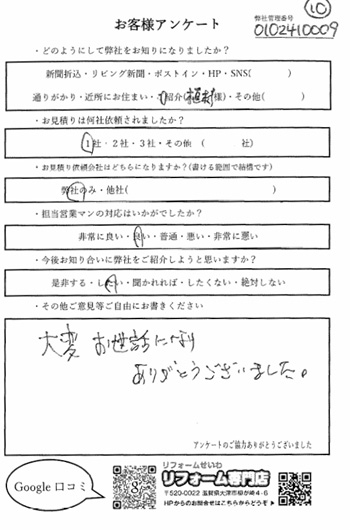 ⑩
お客様アンケート
弊社管理番号
0102410009
・どのようにして弊社をお知りになりましたか？
新聞折込・リビング新聞・ポストイン・HP・SNS(　　　)
通りがかり・近所にお住まい・ご紹介(植村様)・その他(　　　)
・お見積りは何社依頼されましたか？
1社・2社・3社・その他　(　　　社)
・お見積り依頼会社はどちらになりますか？(書ける範囲で結構です)
弊社のみ・他社(　　　)
・担当営業マンの対応はいかがでしたか？
非常に良い・良い・普通・悪い・非常に悪い
・今後お知り合いに弊社をご紹介しようと思いますか？
是非する・したい・聞かれれば・したくない・絶対しない
・その他ご意見等ご自由にお書きください
大変 お世話になり
ありがとうございました。
アンケートのご協力ありがとうございました
Google 口コミ
リフォームせいわ
リフォーム専門店
〒520-0022 滋賀県大津市柳が崎4-6
HPからのお問合せはこちらからどうぞ